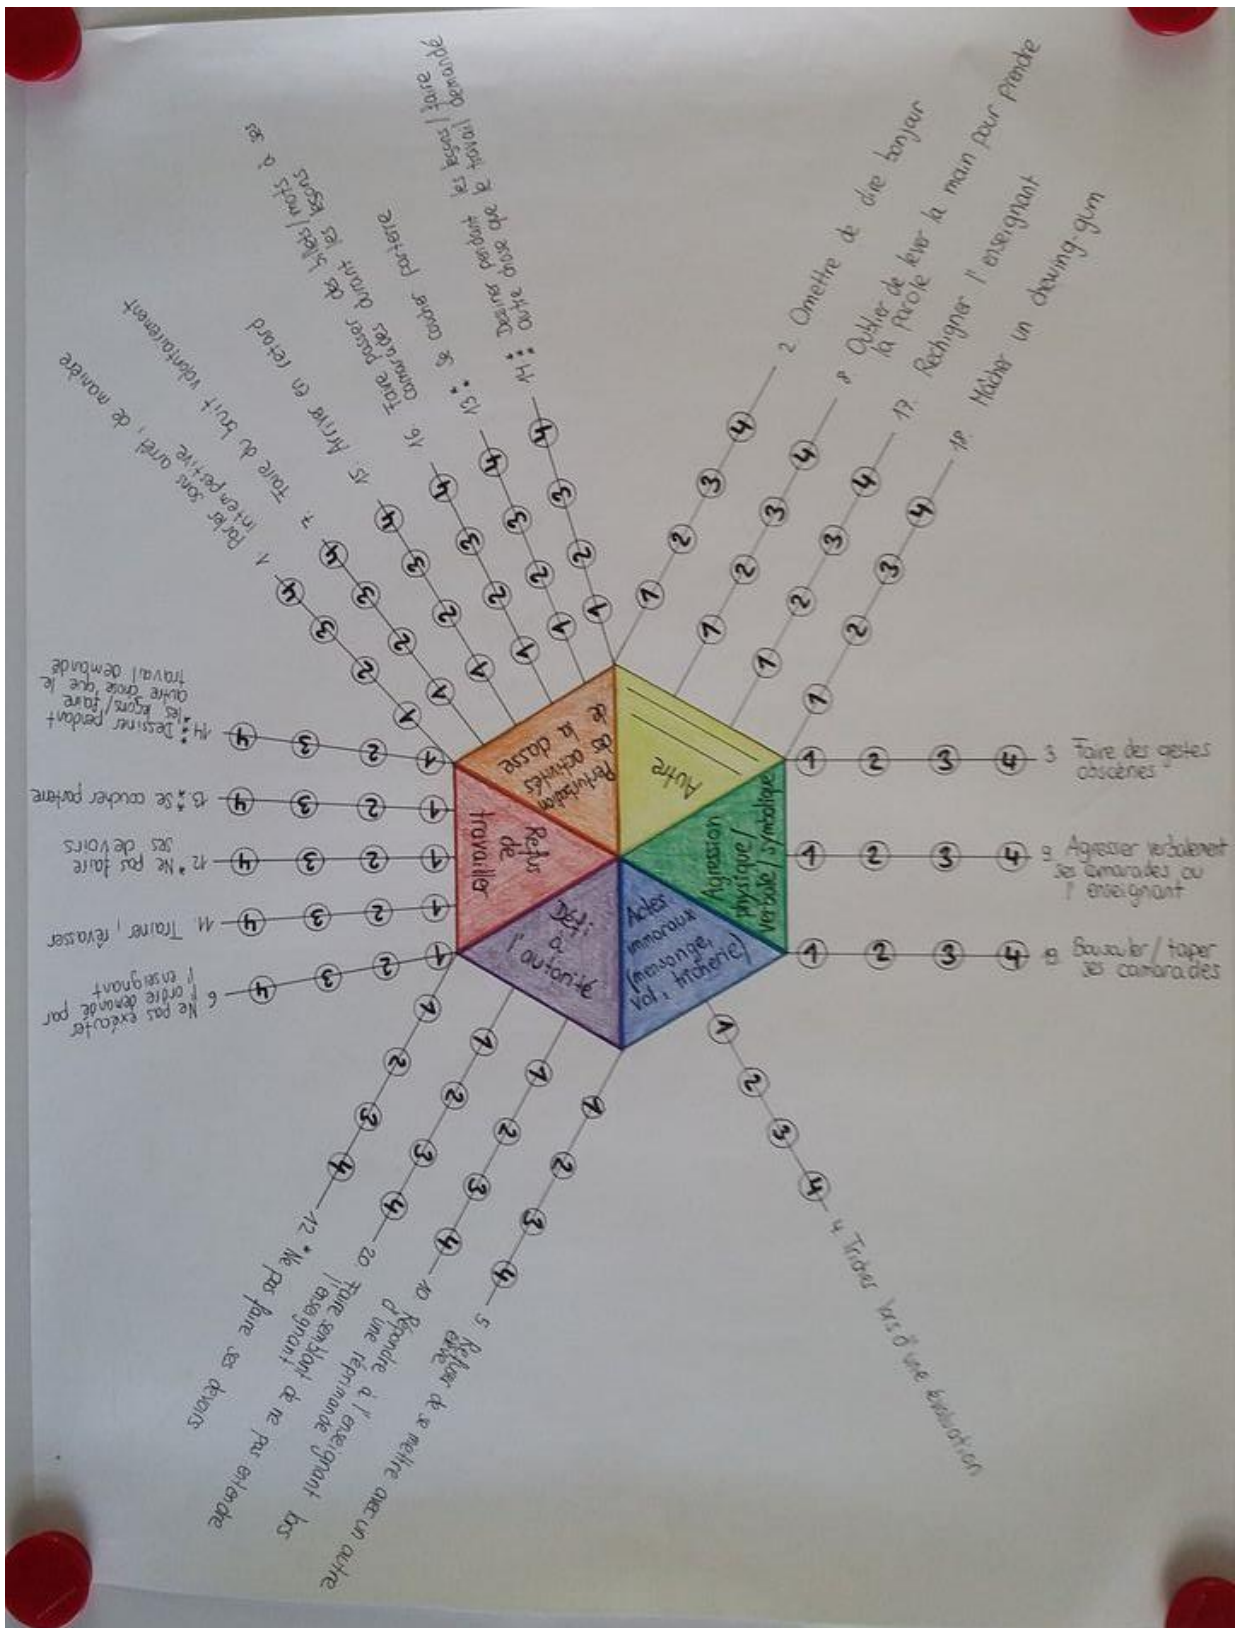 Autre
Agression
physique/
verbale/symbolique
Actes
immoraux
(mensonge,
vol, tricherie)
Défi
à
l'autorité
Refus
de
travailler
Perturbation
des activités
de la classe
1 2 3 4 2 Omettre de dire bonjour
1 2 3 4 8 Oublier de lever la main pour prendre
la parole
1 2 3 4 17. Rechigner l'enseignant
1 2 3 4 18. Mâcher un chewing-gum
1 2 3 4 3 Faire des gestes
obscènes
1 2 3 4 9 Agresser verbalement
ses camarades ou
l'enseignant
1 2 3 4 Bousculer/taper
ses camarades
1 2 3 4 4 Tricher lors d'une évaluation
1 2 3 4 5 Refuser de se mettre avec un autre
élève
1 2 3 4 10 Répondre à l'enseignant lors
d'une réprimande
1 2 3 4 20 Faire semblant de ne pas entendre
l'enseignant
1 2 3 4 12 * Ne pas faire ses devoirs
1 2 3 4 6 Ne pas exécuter
l'ordre demandé par
l'enseignant
1 2 3 4 11. Trainer, rêvasser
1 2 3 4 12 * Ne pas faire
ses devoirs
1 2 3 4 13 ** Se coucher parterre
1 2 3 4 14 ** Dessiner pendant
les leçons/faire
autre chose que le
travail demandé
1 2 3 4 1. Parler sans arrêt, de manière
intempestive
1 2 3 4 7. Faire du bruit volontairement
1 2 3 4 15. Arriver en retard
1 2 3 4 16 Faire passer des billets/mots à ses
camarades durant les leçons
1 2 3 4 13 ** Se coucher parterre
1 2 3 4 14 ** Dessiner pendant les leçons/faire
autre chose que le travail demandé